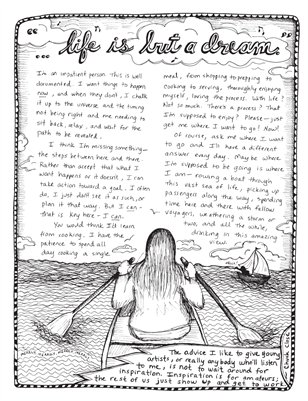 "...life is but a dream..."
I'm an impatient person. This is well
documented. I want things to happen
now, and when they don't, I chalk
it up to the universe and the timing
not being right and me needing to
sit back, relax, and wait for the
path to be revealed.
I think I'm missing something—
the steps between here and there.
Rather than accept that what I
want happens or it doesn't, I can
take action toward a goal. I often
do, I just don't see it as such, or
plan it that way. But I can—
that is key here - I can.
You would think I'd learn
from cooking. I have the
patience to spend all
day cooking a single
meal, from shopping to prepping to
cooking to serving, thoroughly enjoying
myself, loving the process. With life?
Not so much. There's a process? That
I'm supposed to enjoy? Please—just
get me where I want to go! Now!
Of course, ask me where I want
to go and I'll have a different
answer every day. Maybe where
I'm supposed to be going is where
I am - rowing a boat through
this vast sea of life, picking up
passengers along the way, spending
time here and there with fellow
voyagers, weathering a storm or
two, and all the while,
drinking in this amazing
view.
The advice I like to give young
artists, or really anybody who'll listen
to me, is not to wait around for
inspiration. Inspiration is for amateurs;
the rest of us just show up and get to work.
Chuck Close